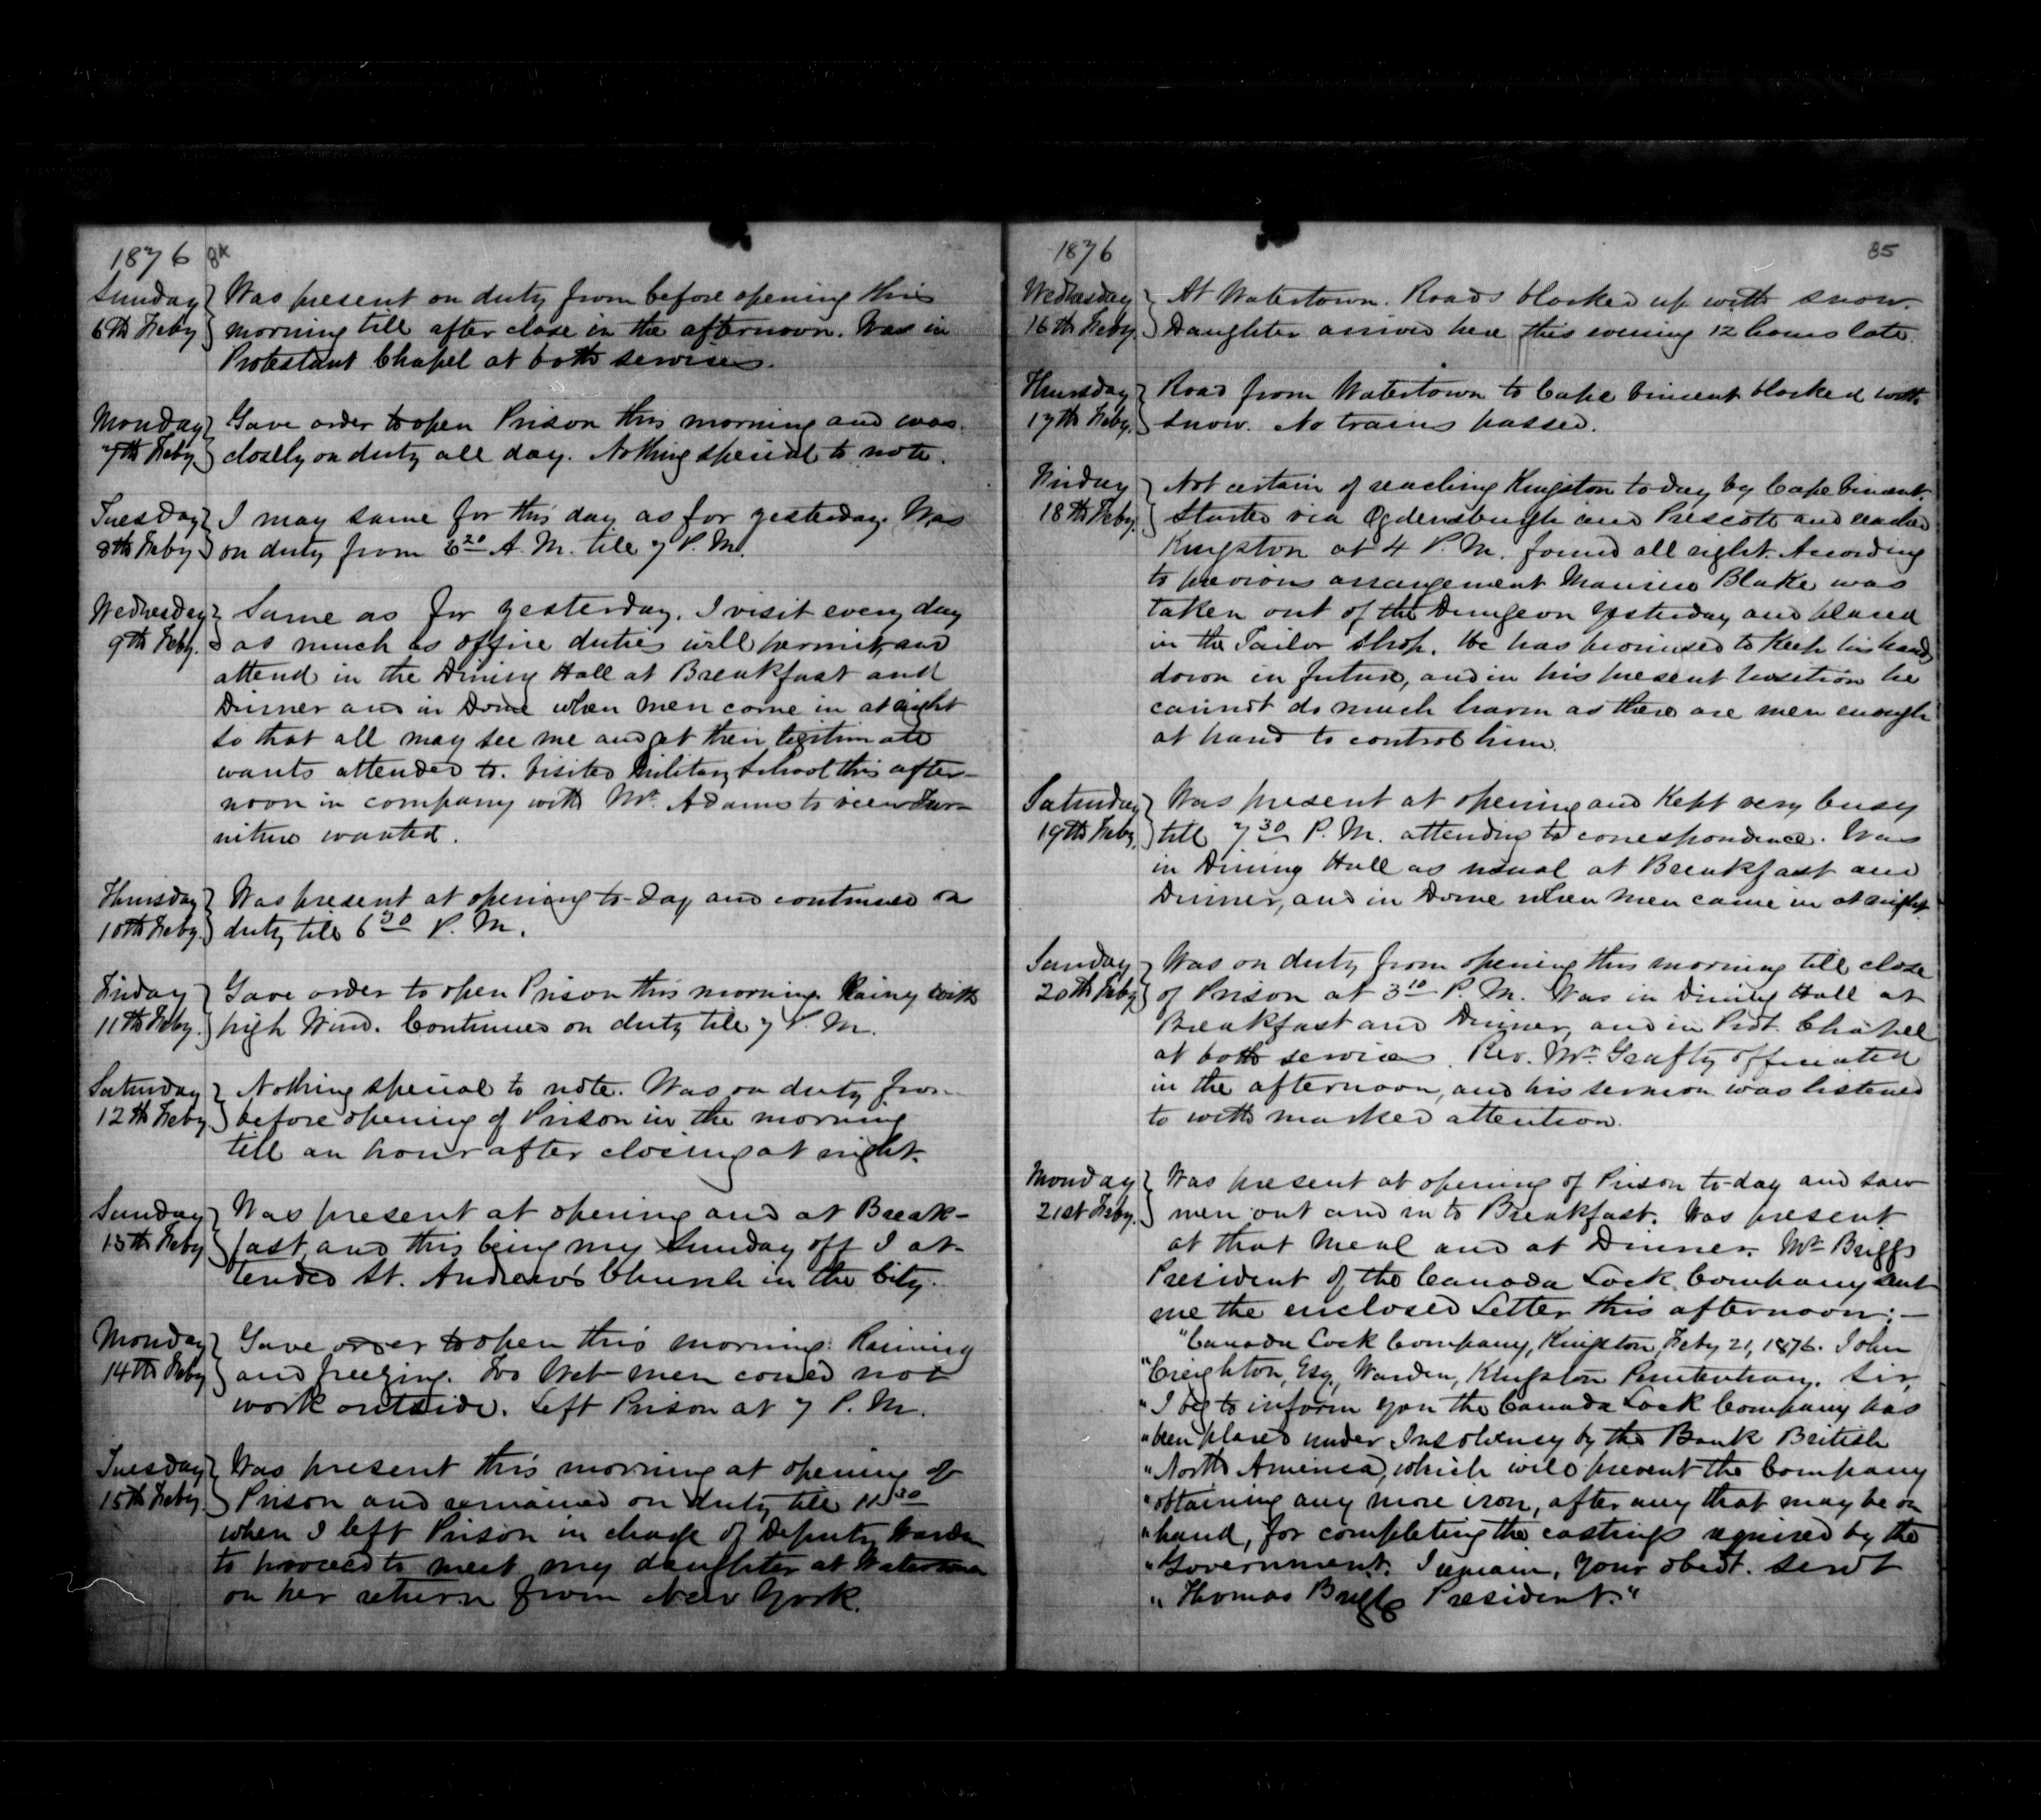 1876 84
Sunday 6th Feby. Was present on duty from before opening this
morning till after close in the afternoon. Was in
Protestant Chapel at both services.
Monday 7th Feby. Gave order to open Prison this morning and was
closely on duty all day. Nothing special to note.
Tuesday 8th Feby I may same for this day as for yesterday. Was
on duty from 6 20 A. M. till 7 P. M.
Wednesday 9th Feby. Same as for yesterday. I visit every day
as much as office duties will permit, and
attend in the Dining Hall at Breakfast and
Dinner and in Dome when men come in at night
so that all may see me and get their legitimate
wants attended to. Visited Military School this after-
noon in company with Mr. Adams to view Fur-
niture wanted.
Thursday 10th Feby. Was present at opening to-day and continued on
duty till 6 30 P. M.
Friday 11th Feby. Gave order to open Prison this morning. Rainy with
high Wind. Continued on duty till 7 P. M.
Saturday 12th Feby. Nothing special to note. Was on duty from
before opening of Prison in the morning
till an hour after closing at night.
Sunday 13th Feby Was present at opening and at Break-
fast, and this being my Sunday off I at-
tended St. Andrew's Church in the City.
Monday 14th Feby Gave order to open this morning. Raining
and freezing. Too Wet men could not
work outside. Left Prison at 7 P. M.
Tuesday 15th Feby. Was present this morning at opening of
Prison and remained on duty till 11 30
when I left Prison in charge of Deputy Warden
to proceed to meet my daughter at Watertown
on her return from New York.
1876 85
Wednesday 16th Feby. At Watertown. Roads blocked up with snow.
Daughter arrived here this evening 12 hours late.
Thursday 17th Feby. Road from Watertown to Cape Vincent blocked with
snow. No trains passed.
Friday 18th Feby. Not certain of reaching Kingston to-day by Cape Vincent.
Started via Ogdensburgh and Prescott and reached
Kingston at 4 P. M. found all right. According
to previous arrangement Maurice Blake was
taken out of the Dungeon yesterday and placed
in the Tailor Shop. He has promised to keep his hands
down in future, and in his present position he
cannot do much harm as there are men enough
at hand to control him.
Saturday 19th Feby. Was present at opening and kept very busy
till 7 30 P. M. attending to correspondence. Was
in Dining Hall as usual at Breakfast and
Dinner, and in Dome when men came in at night.
Sunday 20th Feby Was on duty from opening this morning till close
of Prison at 3 10 P. M. Was in Dining Hall at
Breakfast and Dinner, and in Prot. Chapel
at both services. Rev. Mr. officiated
in the afternoon, and his sermon was listened
to with marked attention.
Monday 21st Feby. Was present at opening of Prison to-day and saw
men out and in to Breakfast. Was present
at that Meal and at Dinner. Mr. Briggs
President of the Canada Lock Company sent
me the enclosed Letter this afternoon:—
"Canada Lock Company, Kingston, Feby 21, 1876. John
"Creighton, Esq, Warden, Kingston Penitentiary. Sir,
"I beg to inform you the Canada Lock Company has
"been placed under Insolvency by the Bank British
"North America, which will prevent the Company
"obtaining any more iron, after any that may be on
"hand, for completing the castings required by the
"Government. I remain, your obedt. servt
"Thomas Briggs President."